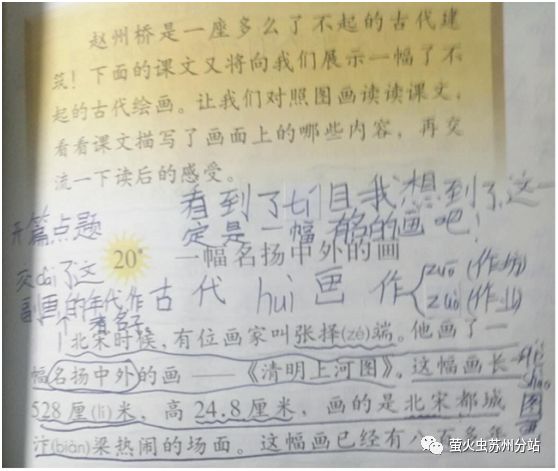 赵州桥是一座多么了不起的古代建
筑！下面的课文又将向我们展示一幅了不
起的古代绘画。让我们对照图画读读课文，
看看课文描写了画面上的哪些内容，再交
流一下读后的感受。
看到了tí目我想到了，这一
定是一幅有名的画吧！
开篇点题
20*
一幅名扬中外的画
交dài了这
副画的年代作
者名子
古代huì画
作
zuō(作坊)
zuò(作业)
北宋时候，有位画家叫张择(zé)端。他画了一
幅名扬中外的画——《清明上河图》。这幅画长
528厘(lí)米，高24.8厘米，画的是北宋都城
汴(biàn)梁热闹的场面。这幅画已经有八百多年
图
萤火虫苏州分站